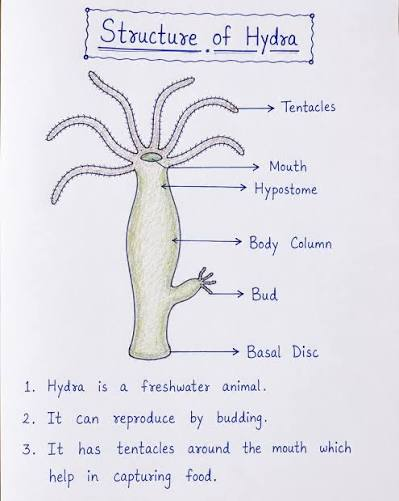 Structure of Hydra
Tentacles
Mouth
Hypostome
Body Column
Bud
Basal Disc
1. Hydra is a freshwater animal.
2. It can reproduce by budding.
3. It has tentacles around the mouth which
help in capturing food.